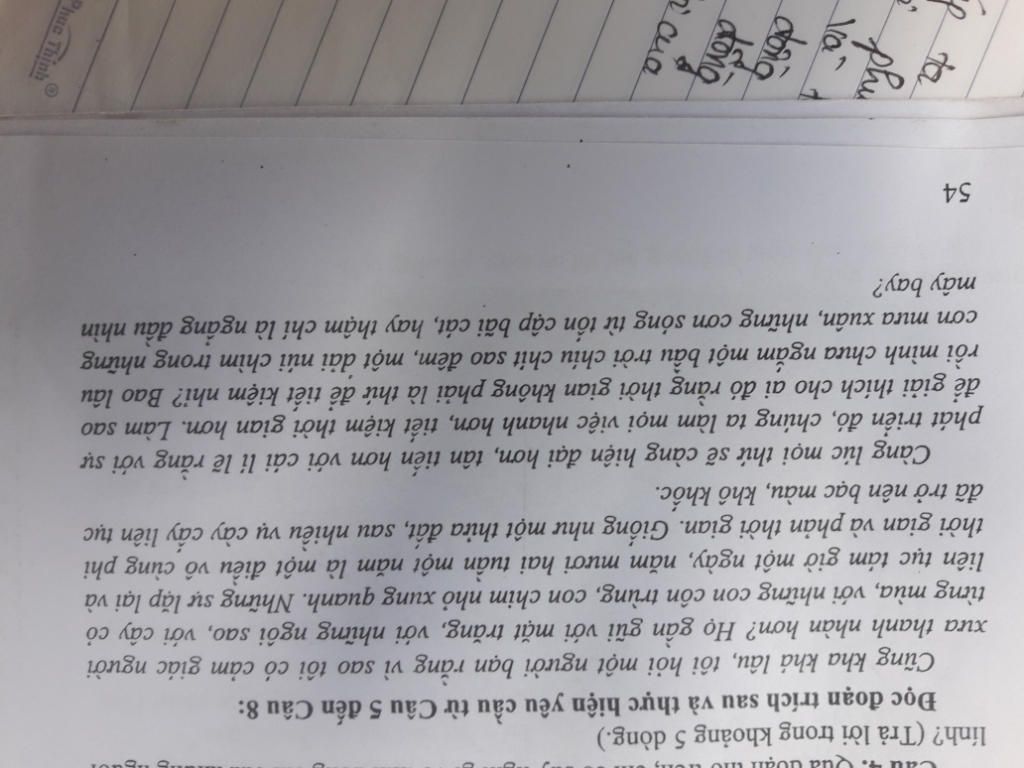 Câu 4. Qua đoạn thơ trên, em có suy nghĩ gì về
lính? (Trả lời trong khoảng 5 dòng.)
Đọc đoạn trích sau và thực hiện yêu cầu từ Câu 5 đến Câu 8:
Cũng kha khá lâu, tôi hỏi một người bạn rằng vì sao tôi có cảm giác người
xưa thanh nhàn hơn? Họ gần gũi với mặt trăng, với những ngôi sao, với cây cỏ
từng mùa, với những con côn trùng, con chim nhỏ xung quanh. Những sự lặp lại và
liên tục tám giờ một ngày, năm mươi hai tuần một năm là một điều vô cùng phi
thời gian và phản thời gian. Giống như một thửa đất, sau nhiều vụ cày cấy liên tục
đã trở nên bạc màu, khô khốc.
Càng lúc mọi thứ sẽ càng hiện đại hơn, tân tiến hơn với cái lí lẽ rằng với sự
phát triển đó, chúng ta làm mọi việc nhanh hơn, tiết kiệm thời gian hơn. Làm sao
để giải thích cho ai đó rằng thời gian không phải là thứ để tiết kiệm nhỉ? Bao lâu
rồi mình chưa ngắm một bầu trời chíu chít sao đêm, một dải núi chìm trong những
cơn mưa xuân, những cơn sóng từ tốn cập bãi cát, hay thậm chí là ngẩng đầu nhìn
mây bay?
54
của
đồng
đồng
và
phu
ta
Phúc Thịnh®